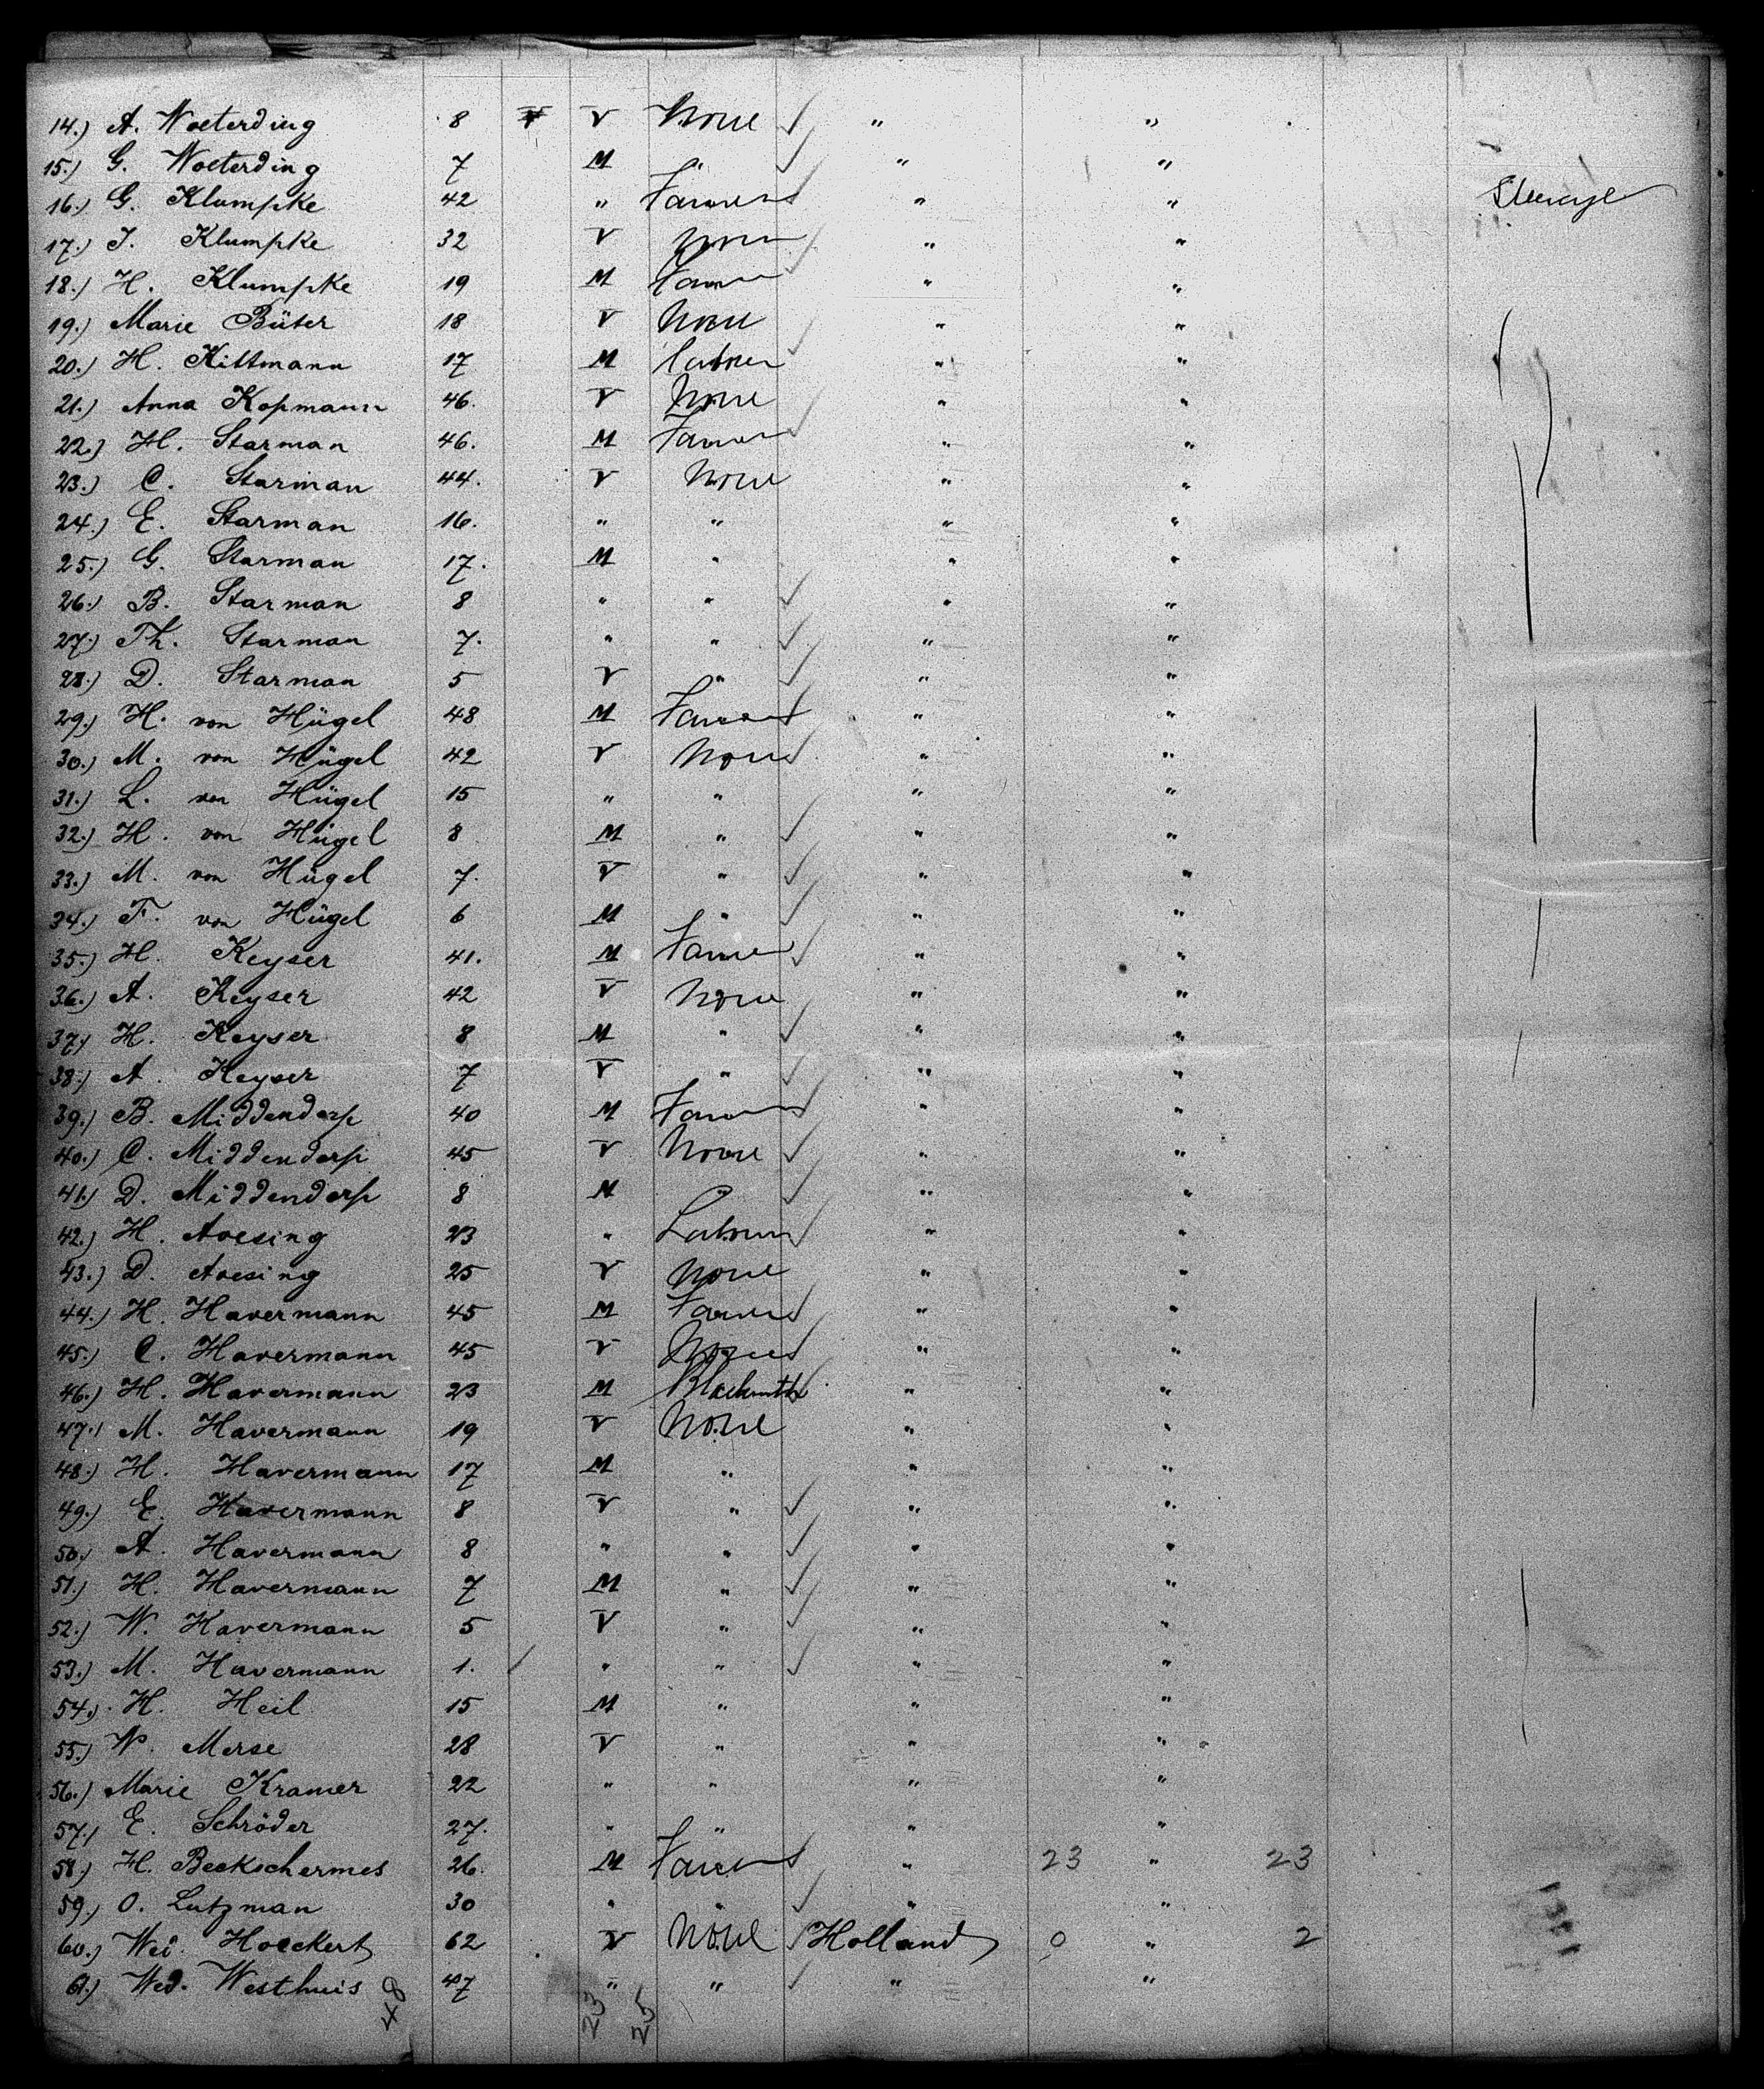 14.) A. Woeterding 8 V V None " "
15.) G. Woeterding 7 M " "
16.) G. Klumpke 42 " Farmer " " Steerage
17.) J. Klumpke 32 V None " "
18.) H. Klumpke 19 M Farmer " "
19.) Marie Büter 18 V None " "
20.) H. Kittmann 17 M Labrer " "
21.) Anna Kopmann 46. V None " "
22.) H. Starman 46. M Farmer " "
23.) C. Starman 44. V None " "
24.) E. Starman 16. " " " "
25.) G. Starman 17. M " " "
26.) B. Starman 8 " " " "
27.) Th. Starman 7. " " " "
28.) D. Starman 5 V " " "
29.) H. von Hügel 48 M Farmer " "
30.) M. von Hügel 42 V None " "
31.) L. von Hügel 15 " " " "
32.) H. von Hügel 8 M " " "
33.) M. von Hügel 7. V " " "
34.) F. von Hügel 6 M " " "
35.) H. Keyser 41. M Farmer " "
36.) A. Keyser 42 V None " "
37.) H. Keyser 8 M " " "
38.) A. Keyser 7 V " " "
39.) B. Middendorp 40 M Farmer " "
40.) C. Middendorp 45 V None " "
41.) D. Middendorp 8 M " "
42.) H. Avesing 23 " Labrer " "
43.) D. Avesing 25 V None " "
44.) H. Havermann 45 M Farmer " "
45.) C. Havermann 45 V None " "
46.) H. Havermann 23 M Blacksmith " "
47.) M. Havermann 19 V None " "
48.) H. Havermann 17 M " " "
49.) E. Havermann 8 V " " "
50.) A. Havermann 8 " " " "
51.) H. Havermann 7 M " " "
52.) W. Havermann 5 V " " "
53.) M. Havermann 1. " " " "
54.) H. Heil 15 M " " "
55.) W. Merse 28 V " " "
56.) Marie Kramer 22 " " " "
57.) E. Schröder 27. " " " "
58.) H. Beckschermes 26. M Farmer " 23 " 23
59.) O. Lutzman 30 " " " "
60.) Wed. Hoeckert 62 V None Holland 0 " 2
61.) Wed. Westhuis 47 " " " "
48 23 25